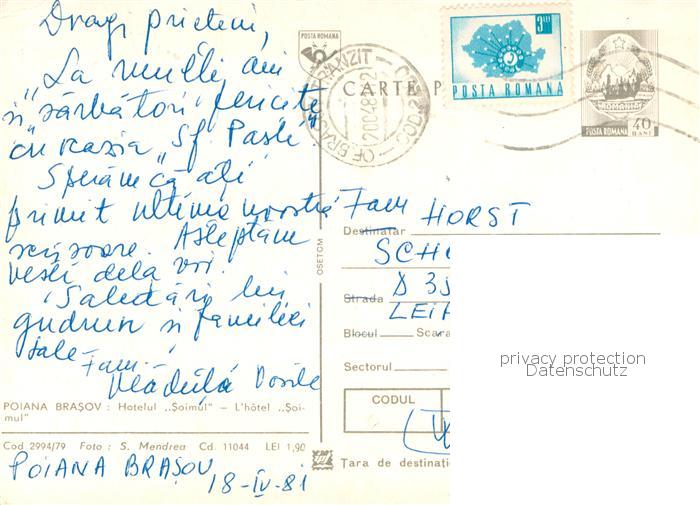 Dragi prieteni,
"La mulţi ani
şi sărbători fericite
cu ocazia "Sf. Paşti".
Sperăm că aţi
primit ultima noastră
scrisoare. Aşteptăm
veşti dela voi.
Salutări lui
gudrun şi familiei
sale.
Fam.
Vlăduţă Vasile
POIANA BRAŞOV : Hotelul ,,Şoimul" – L'hôtel ,,Şoi-
mul"
Cod 2994/79 Foto : S. Mendrea Cd. 11044 LEI 1,90
POIANA BRAŞOV
18-IV-81
OSETCM
POSTA ROMANA
CARTE P
TRANZIT
OF. BRAŞOV
3 LEI
POSTA ROMANA
ROMANIA
POSTA ROMANA 40 BANI
Fam HORST
Destinatar
SCH
D 3
Strada
LEI
Blocul Scara
Sectorul
CODUL
Ţara de destinaţi
privacy protection
Datenschutz